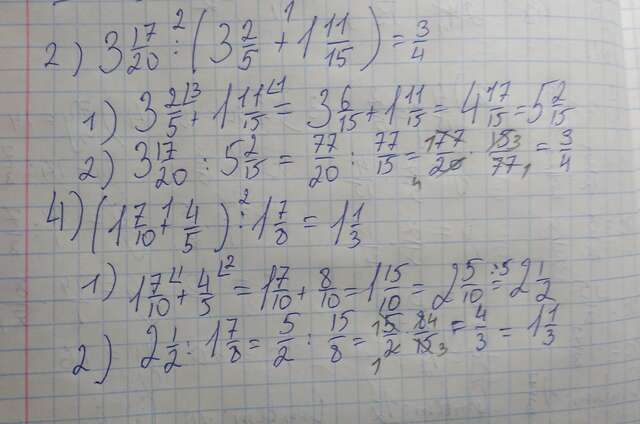 2) 3 17/20 :² (3 2/5 +¹ 1 11/15) = 3/4
1) 3 2/5 ⌊3 + 1 11/15 ⌊1 = 3 6/15 + 1 11/15 = 4 17/15 = 5 2/15
2) 3 17/20 : 5 2/15 = 77/20 : 77/15 = ¹77/20₄ 15³/77₁ = 3/4
4) (1 7/10 +¹ 4/5) :² 1 7/8 = 1 1/3
1) 1 7/10 ⌊1 + 4/5 ⌊2 = 1 7/10 + 8/10 = 1 15/10 = 2 5/10 :5 = 2 1/2
2) 2 1/2 : 1 7/8 = 5/2 : 15/8 = ¹5/2₁ 8⁴/15₃ = 4/3 = 1 1/3